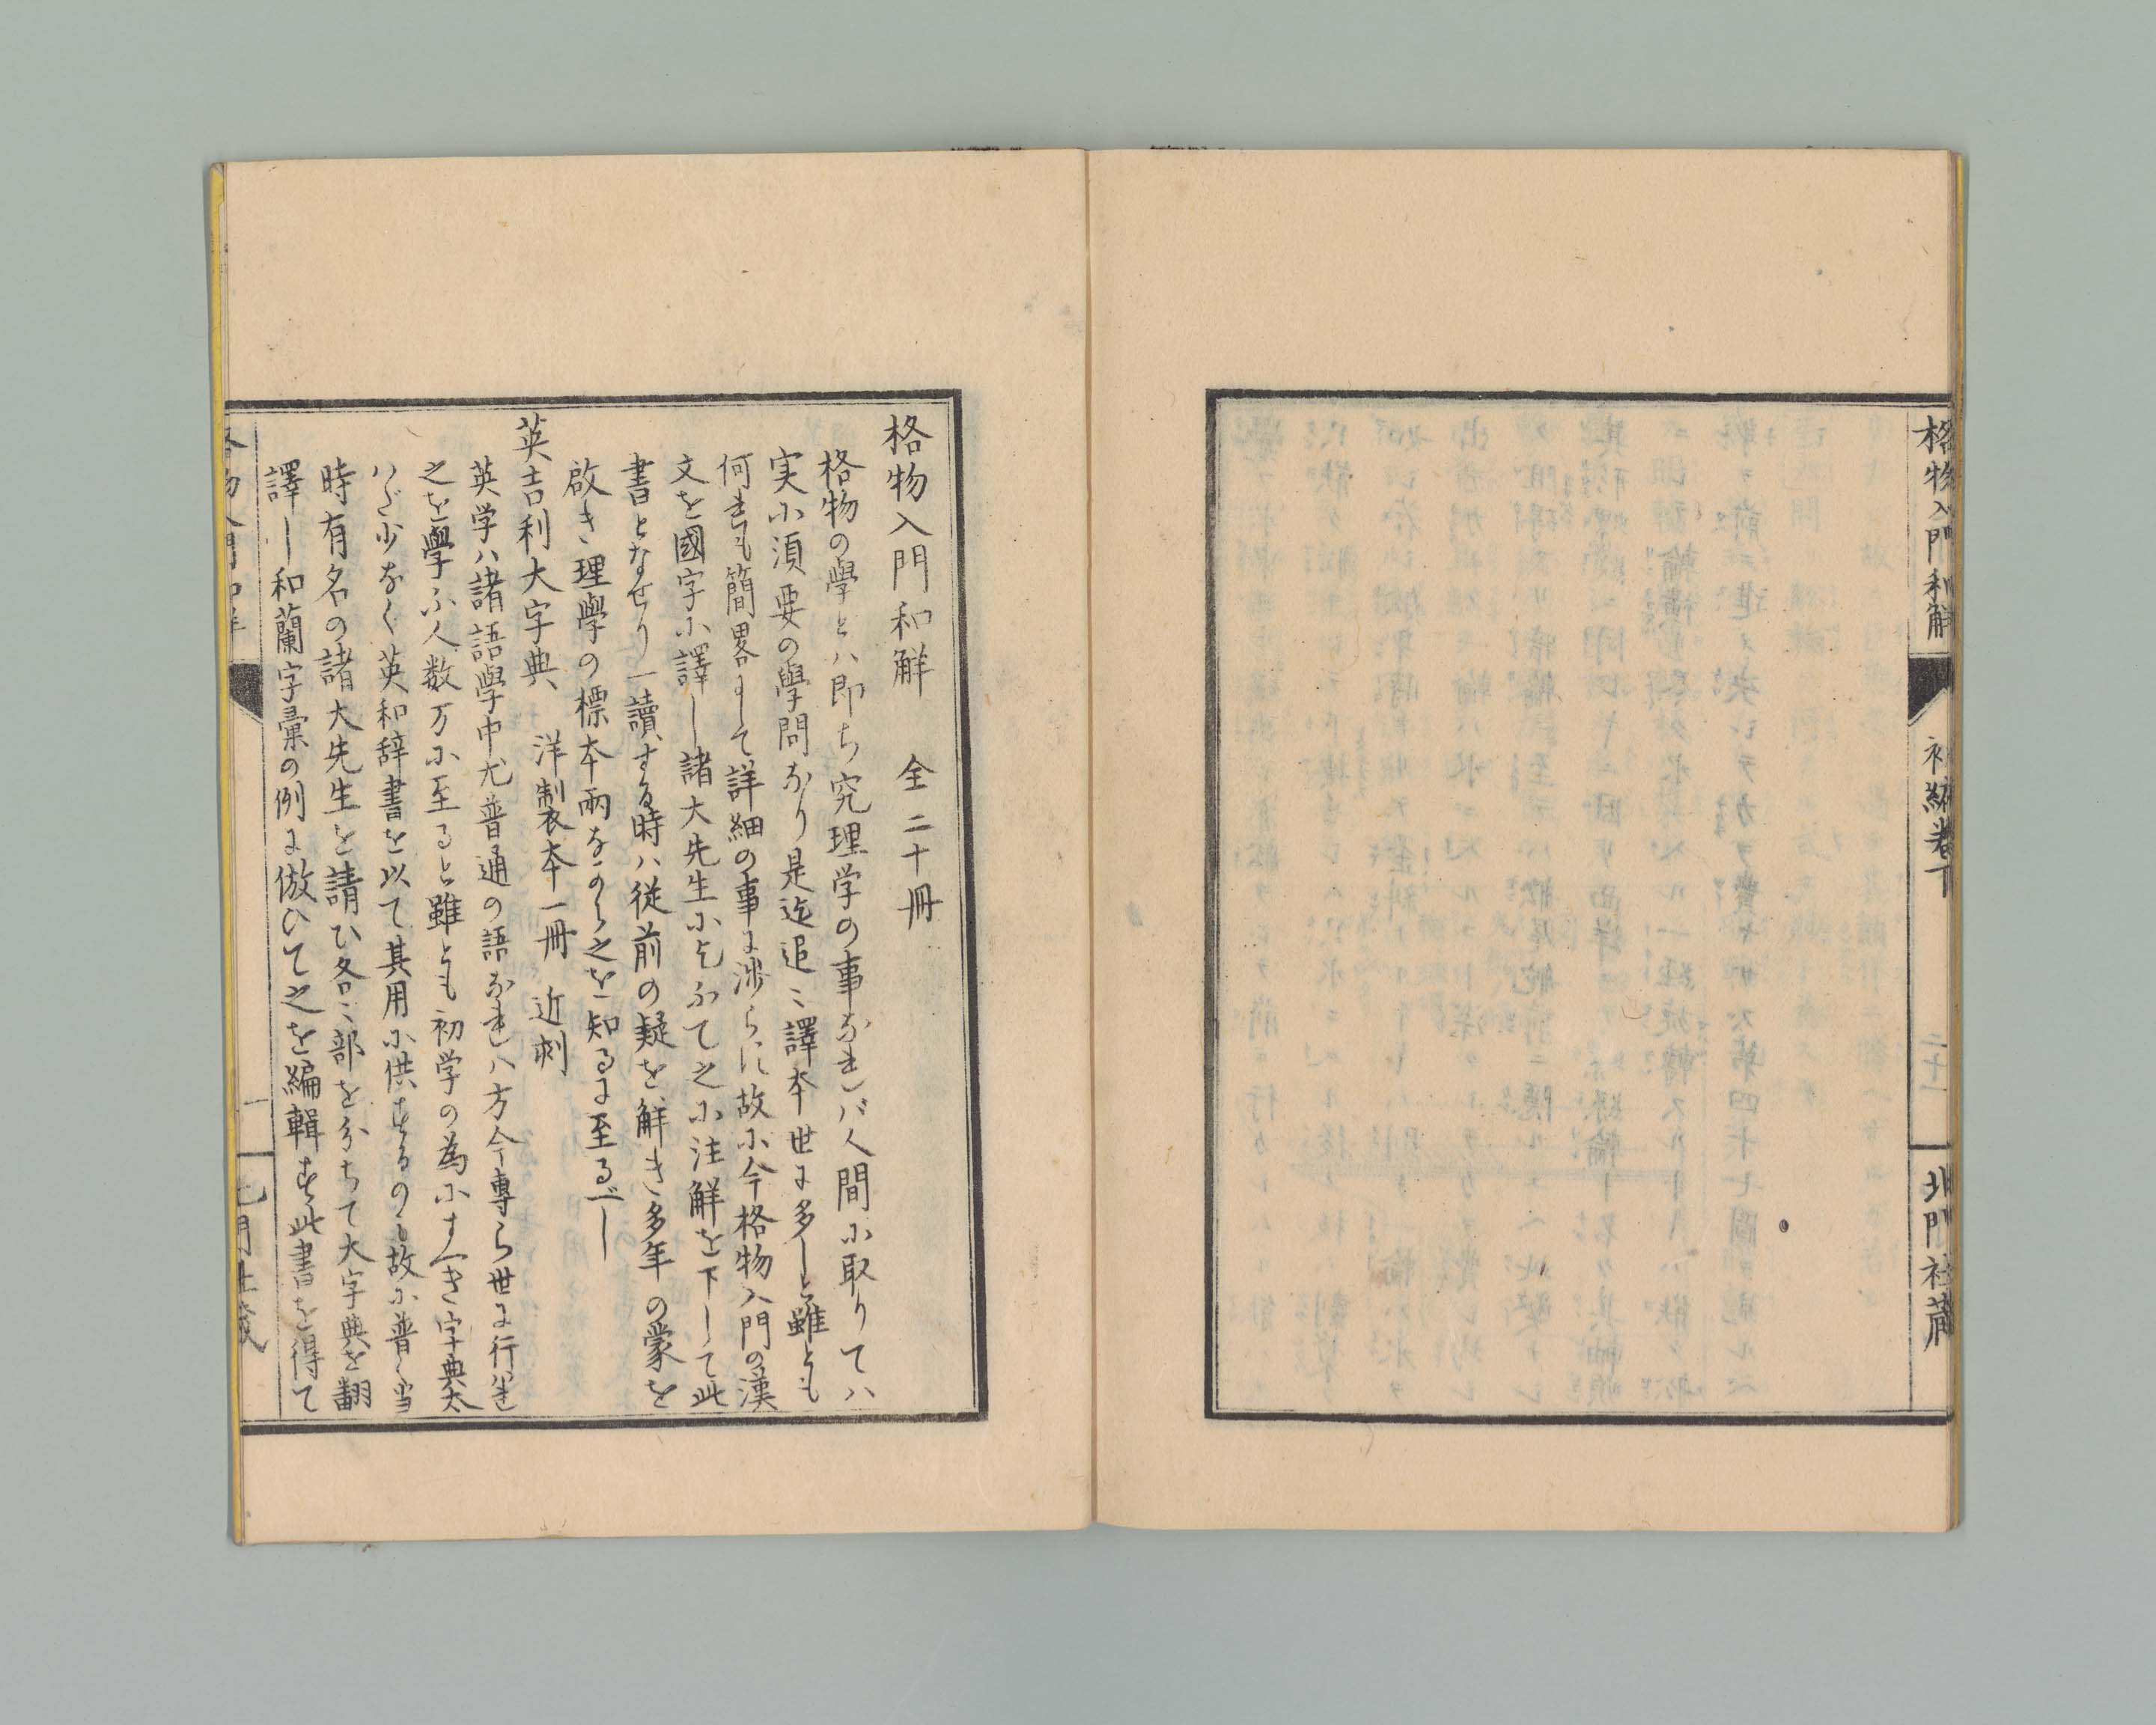 格物入門和解
補編巻下
二十一
北門社蔵
格物入門和觧　全二十冊
格物の學とハ即ち究理学の事なれバ人間に取りてハ
実に須要の學問なり是迄追々譯本世に多しと雖とも
何れも簡畧にして詳細の事に渉らに故に今格物入門の漢
文を國字に譯し諸大先生に乞ふて之に注觧を下して此
書となせり一讀する時ハ従前の疑を觧き多年の蒙を
啟き理學の標本両なから之を知るに至るべし
英吉利大字典　洋制衣本一冊　近刺
英学ハ諸語學中尤普通の語なれハ方今專ら世に行はれ
之を學ふ人数万に至ると雖とも初学の為にすへき字典太
ハだ少なく英和辞書を以て其用に供するのミ故に普く当
時有名の諸大先生を請ひ各々部を分ちて大字典を翻
譯し和蘭字彙の例に倣ひて之を編輯す此書を得て
格物入門和解
一
北門社蔵